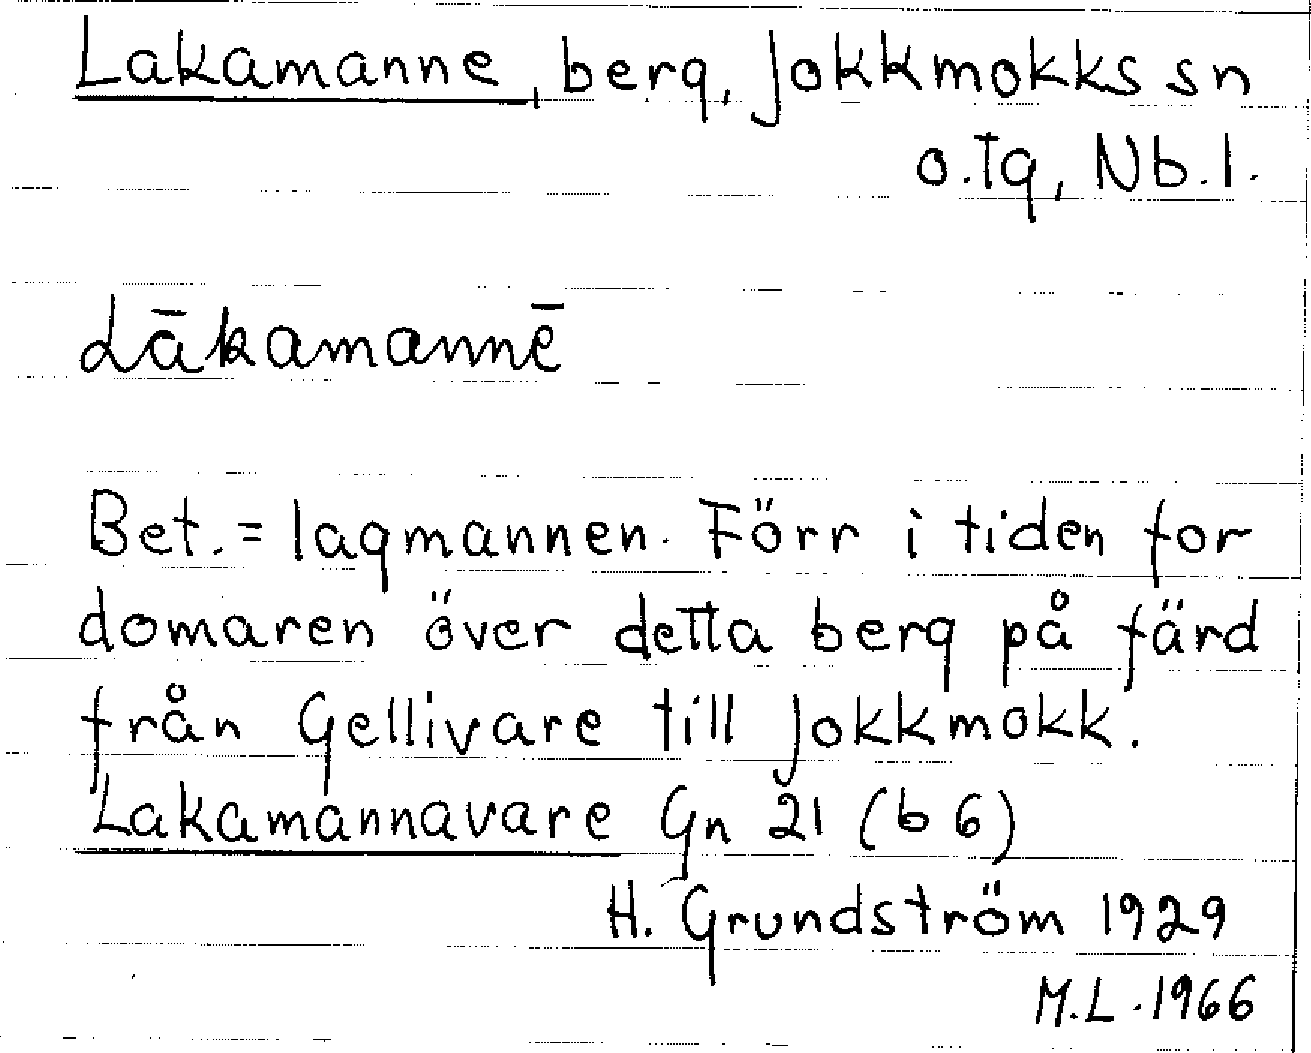 Lakamanne, berg, Jokkmokks sn
o. tg, Nb. l.
Lākamannē
Bet. = lagmannen. Förr i tiden for
domaren över detta berg på färd
från Gellivare till Jokkmokk.
Lakamannavare Gn 21 (b 6)
H. Grundström 1929
M.L. 1966